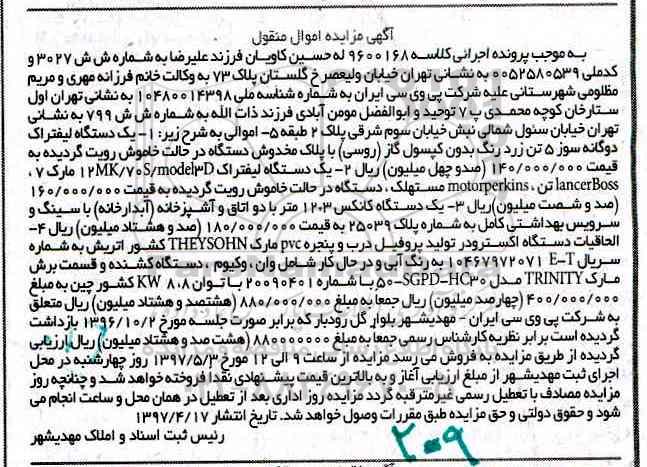 آگهی مزایده اموال منقول
به موجب پرونده اجرائی کلاسه ۹۶۰۰۱۶۸ له حسین کاویان فرزند علیرضا به شماره ش ش ۳۰۲۷ و
کدملی ۰۰۵۲۵۸۰۵۳۹ به نشانی تهران خیابان ولیعصر خ گلستان پلاک ۷۳ به وکالت خانم فرزانه مهری و مریم
مظلومی شهرستانی علیه شرکت پی وی سی ایران به شماره شناسه ملی ۱۰۴۸۰۰۱۴۳۹۸ به نشانی تهران اول
ستارخان کوچه محمدی پ ۷ توحید و ابوالفضل مومن آبادی فرزند ذات الله به شماره ش ش ۷۹۹ به نشانی
تهران خیابان سئول شمالی نبش خیابان سوم شرقی پلاک ۲ طبقه ۵- اموالی به شرح زیر: ۱- یک دستگاه لیفتراک
دوگانه سوز ۵ تن زرد رنگ بدون کپسول گاز (روسی) با پلاک مخدوش دستگاه در حالت خاموش رویت گردیده به
قیمت ۱۴۰/۰۰۰/۰۰۰ (صدو چهل میلیون) ریال ۲- یک دستگاه لیفتراک ۱۲MK/۷۰S/model۳D مارک ۷ ،
lancerBoss تن ، motorperkins مستهلک ، دستگاه در حالت خاموش رویت گردیده به قیمت ۱۶۰/۰۰۰/۰۰۰
(صد و شصت میلیون)ریال ۳- یک دستگاه کانکس ۳*۱۲ متر با دو اتاق و آشپزخانه (آبدارخانه) با سینگ و
سرویس بهداشتی کامل به شماره پلاک ۲۵۰۳۹ به قیمت ۱۸۰/۰۰۰/۰۰۰ (صد و هشتاد میلیون) ریال ۴-
الحاقیات دستگاه اکسترودر تولید پروفیل درب و پنجره pvc مارک THEYSOHN کشور اتریش به شماره
سریال E-T ۱۰۴۶۷۹۷۲۰۷۱ به رنگ آبی و در حال کار شامل وان ، وکیوم ، دستگاه کشنده و قسمت برش
مارک TRINITY مدل ۵۰-SGPD-HC۳۰ با شماره ۲۰۰۹۰۴۰۱ با توان ۸.۸ KW کشور چین به مبلغ
۴۰۰/۰۰۰/۰۰۰ (چهارصد میلیون) ریال جمعا به مبلغ ۸۸۰/۰۰۰/۰۰۰ (هشتصد و هشتاد میلیون) ریال متعلق
به شرکت پی وی سی ایران - مهدیشهر بلوار گل رودبار که برابر صورت جلسه مورخ ۱۳۹۶/۱۰/۲ بازداشت
گردیده است برابر نظریه کارشناس رسمی جمعا به مبلغ ۸۸۰۰۰۰۰۰۰ (هشت صد و هشتاد میلیون) ریال ارزیابی
گردیده از طریق مزایده به فروش می رسد مزایده از ساعت ۹ الی ۱۲ مورخ ۱۳۹۷/۵/۳ روز چهارشنبه در محل
اجرای ثبت مهدیشهر از مبلغ ارزیابی آغاز و به بالاترین قیمت پیشنهادی نقدا فروخته خواهد شد و چنانچه روز
مزایده مصادف با تعطیل رسمی غیرمترقبه گردد مزایده روز اداری بعد از تعطیل در همان محل و ساعت انجام می
شود و حقوق دولتی و حق مزایده طبق مقررات وصول خواهد شد. تاریخ انتشار ۱۳۹۷/۴/۱۷
رئیس ثبت اسناد و املاک مهدیشهر
۲۰۰۹